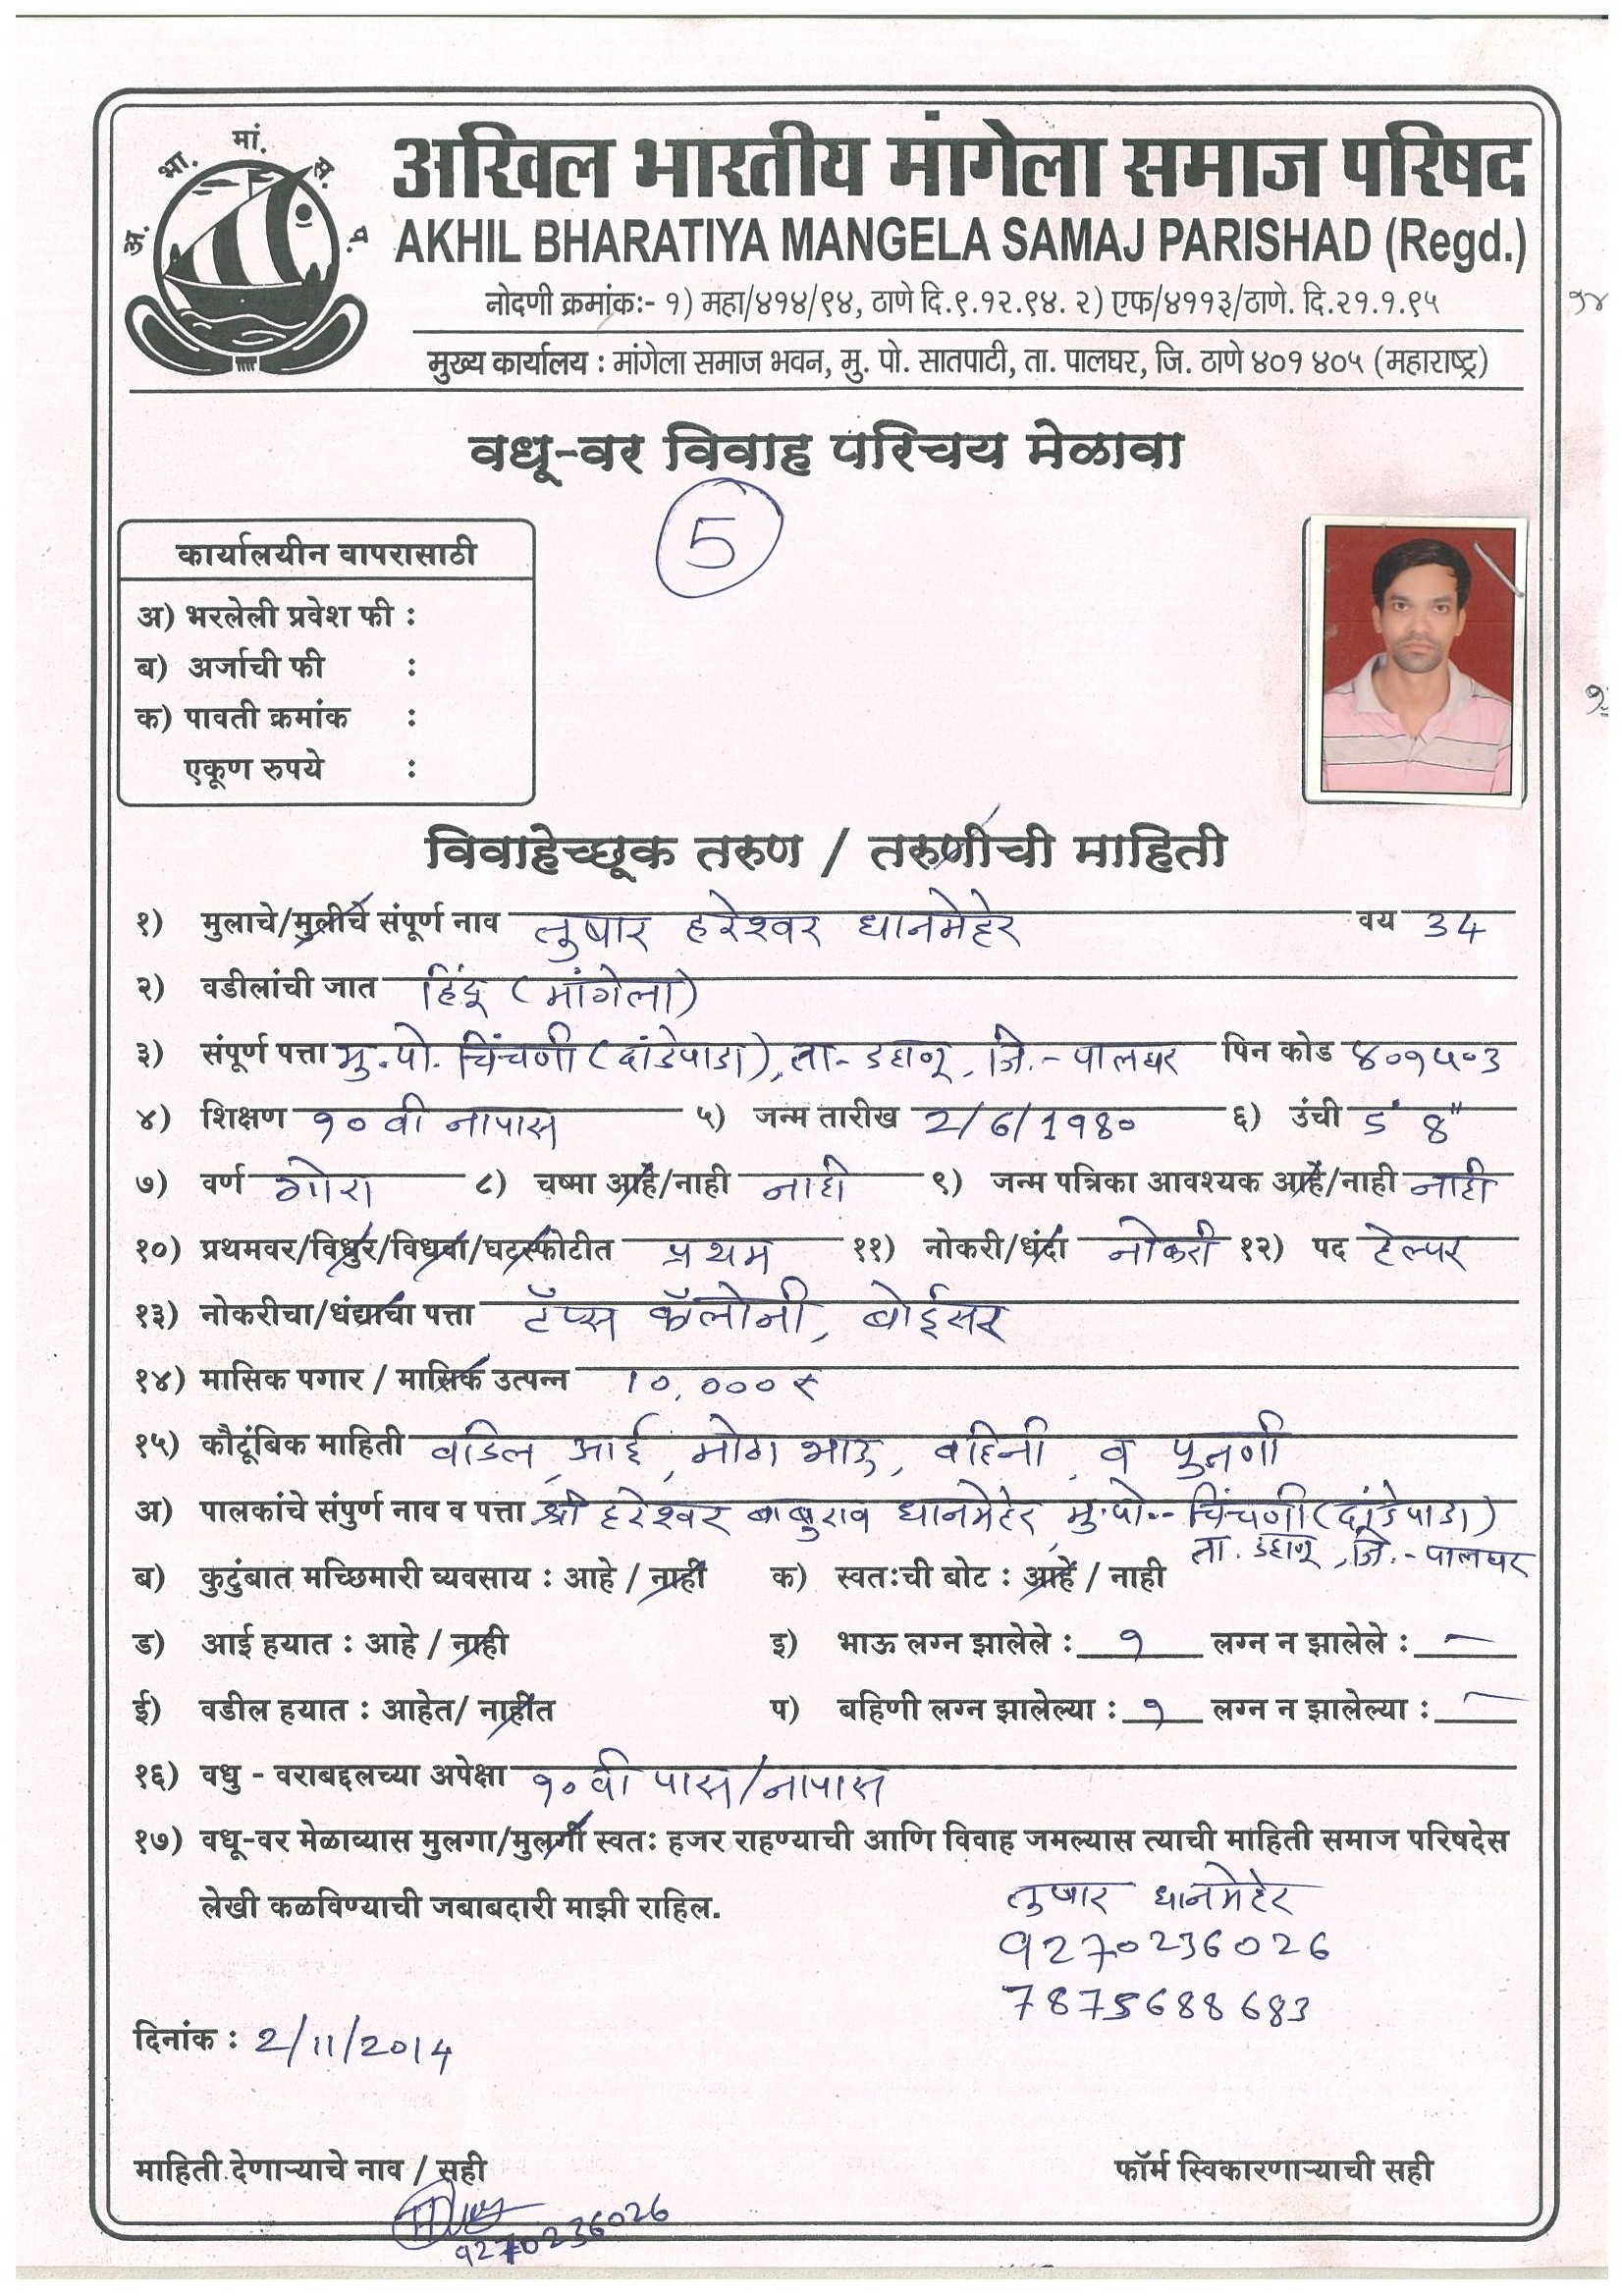 अ. भा. मां. स. प.
अखिल भारतीय मांगेला समाज परिषद
AKHIL BHARATIYA MANGELA SAMAJ PARISHAD (Regd.)
नोदणी क्रमांकः- १) महा/४१४/९४, ठाणे दि.९.१२.९४. २) एफ/४११३/ठाणे. दि.२१.१.९५
मुख्य कार्यालय : मांगेला समाज भवन, मु. पो. सातपाटी, ता. पालघर, जि. ठाणे ४०१ ४०५ (महाराष्ट्र)
वधू-वर विवाह परिचय मेळावा
5
कार्यालयीन वापरासाठी
अ) भरलेली प्रवेश फी :
ब) अर्जाची फी :
क) पावती क्रमांक :
एकूण रुपये :
विवाहेच्छूक तरुण / तरुणीची माहिती
१) मुलाचे/मुलीचे संपूर्ण नाव तुषार हरेश्वर धानमेहेर वय 34
२) वडीलांची जात हिंदू (मांगेला)
३) संपूर्ण पत्ता मु.पो. चिंचणी (दांडेपाडा), ता- डहाणू, जि.- पालघर पिन कोड ४०१५०३
४) शिक्षण १० वी नापास ५) जन्म तारीख 2/6/1980 ६) उंची 5' 8"
७) वर्ण गोरा ८) चष्मा आहे/नाही नाही ९) जन्म पत्रिका आवश्यक आहे/नाही नाही
१०) प्रथमवर/विधुर/विधवा/घटस्फोटीत प्रथम ११) नोकरी/धंदा नोकरी १२) पद हेल्पर
१३) नोकरीचा/धंद्याचा पत्ता टॅप्स कॅलोनी, बोईसर
१४) मासिक पगार / मासिक उत्पन्न 10,000 ₹
१५) कौटूंबिक माहिती वडिल, आई, मोठा भाऊ, वहिनी, व पुतणी
अ) पालकांचे संपुर्ण नाव व पत्ता श्री हरेश्वर बाबुराव धानमेहेर, मु.पो.- चिंचणी (दांडेपाडा)
ता. डहाणू, जि.- पालघर
ब) कुटुंबात मच्छिमारी व्यवसाय : आहे / नाही क) स्वतःची बोट : आहे / नाही
ड) आई हयात : आहे / नाही इ) भाऊ लग्न झालेले : १ लग्न न झालेले : —
ई) वडील हयात : आहेत/ नाहीत प) बहिणी लग्न झालेल्या : १ लग्न न झालेल्या : —
१६) वधु - वराबद्दलच्या अपेक्षा १० वी पास/नापास
१७) वधू-वर मेळाव्यास मुलगा/मुलगी स्वतः हजर राहण्याची आणि विवाह जमल्यास त्याची माहिती समाज परिषदेस
लेखी कळविण्याची जबाबदारी माझी राहिल.
तुषार धानमेहेर
9270236026
7875688683
दिनांक : 2/11/2014
माहिती देणाऱ्याचे नाव / सही फॉर्म स्विकारणाऱ्याची सही
9270236026